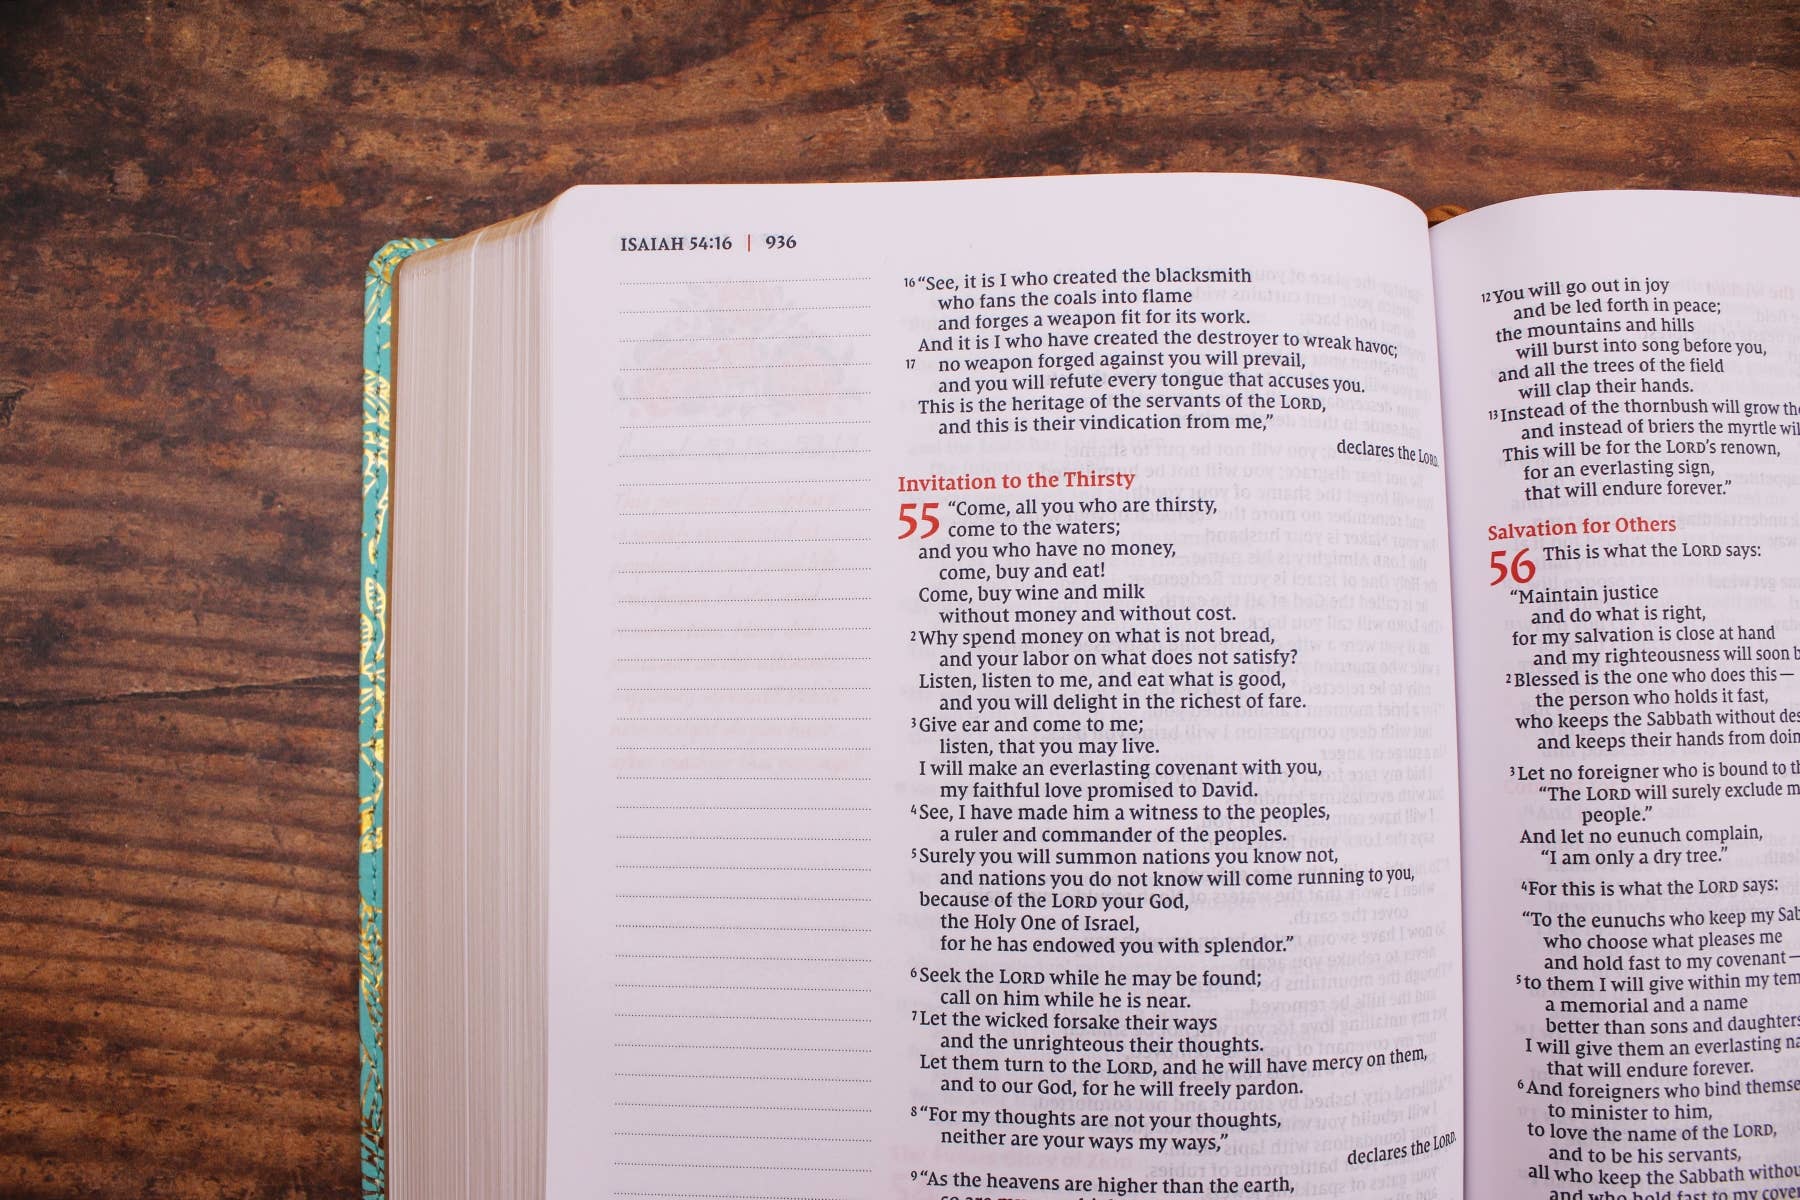 ISAIAH 54:16 | 936
16 “See, it is I who created the blacksmith
who fans the coals into flame
and forges a weapon fit for its work.
And it is I who have created the destroyer to wreak havoc;
17 no weapon forged against you will prevail,
and you will refute every tongue that accuses you.
This is the heritage of the servants of the LORD,
and this is their vindication from me,”
declares the LORD.
Invitation to the Thirsty
55 “Come, all you who are thirsty,
come to the waters;
and you who have no money,
come, buy and eat!
Come, buy wine and milk
without money and without cost.
2 Why spend money on what is not bread,
and your labor on what does not satisfy?
Listen, listen to me, and eat what is good,
and you will delight in the richest of fare.
3 Give ear and come to me;
listen, that you may live.
I will make an everlasting covenant with you,
my faithful love promised to David.
4 See, I have made him a witness to the peoples,
a ruler and commander of the peoples.
5 Surely you will summon nations you know not,
and nations you do not know will come running to you,
because of the LORD your God,
the Holy One of Israel,
for he has endowed you with splendor.”
6 Seek the LORD while he may be found;
call on him while he is near.
7 Let the wicked forsake their ways
and the unrighteous their thoughts.
Let them turn to the LORD, and he will have mercy on them,
and to our God, for he will freely pardon.
8 “For my thoughts are not your thoughts,
neither are your ways my ways,”
declares the LORD.
9 “As the heavens are higher than the earth,
12 You will go out in joy
and be led forth in peace;
the mountains and hills
will burst into song before you,
and all the trees of the field
will clap their hands.
13 Instead of the thornbush will grow
and instead of briers the myrtle
This will be for the LORD’s renown,
for an everlasting sign,
that will endure forever.”
Salvation for Others
56 This is what the LORD says:
“Maintain justice
and do what is right,
for my salvation is close at hand
and my righteousness will soon
2 Blessed is the one who does this—
the person who holds it fast,
who keeps the Sabbath without
and keeps their hands from
3 Let no foreigner who is bound to
“The LORD will surely exclude
people.”
And let no eunuch complain,
“I am only a dry tree.”
4 For this is what the LORD says:
“To the eunuchs who keep my
who choose what pleases me
and hold fast to my covenant—
5 to them I will give within my
a memorial and a name
better than sons and daughters
I will give them an everlasting
that will endure forever.
6 And foreigners who bind
to minister to him,
to love the name of the LORD,
and to be his servants,
all who keep the Sabbath
and who hold fast to my